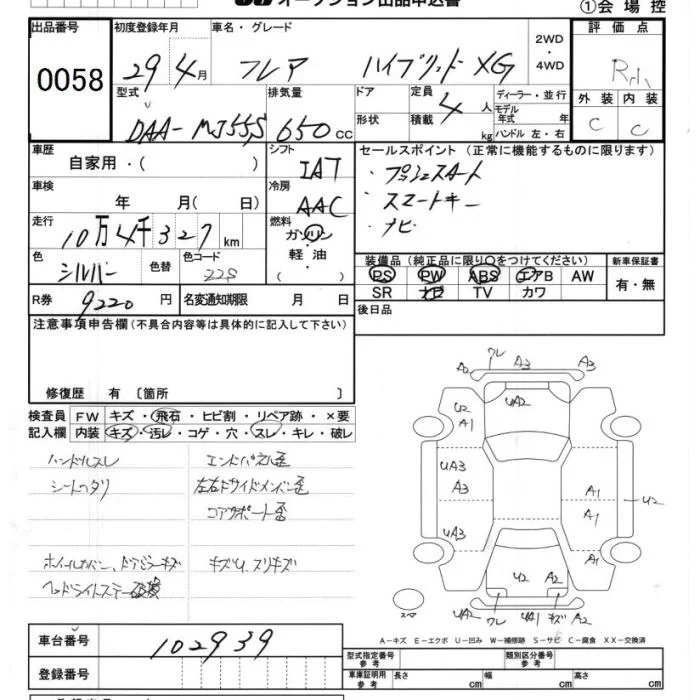 オークション出品申込書
①会場控
出品番号
0058
初度登録年月
29年4月
車名・グレード
フレア ハイブリッド XG
2WD
・
4WD
評価点
外装 内装
C C
型式
DAA-MJ55S
排気量
650cc
ドア
形状
定員
4人
積載 kg
ディーラー・並行
モデル
年式 年
ハンドル 左・右
車歴
自家用・( )
シフト
IAT
セールスポイント (正常に機能するものに限ります)
・プッシュスタート
・スマートキー
・ナビ
車検
年 月( 日)
冷房
AAC
走行
10万4千327km
燃料
ガソリン
軽・油
( )
色
シルバー
色替
色コード
22S
装備品 (純正品に限り○をつけてください)
PS PW ABS エアB AW
SR ナビ TV カワ
新車保証書
有・無
R券
9220円
名変通知期限 月 日
後日品
注意事項申告欄 (不具合内容等は具体的に記入して下さい)
修復歴 有 〔箇所 〕
検査員
記入欄
FW キズ・飛石・ヒビ割・リペア跡・×要
内装 キズ・汚レ・コゲ・穴・スレ・キレ・破レ
ハンドルスレ
シートヘタリ
エンドパネル歪
左右Rサイドメンバー歪
コアサポート歪
ホイールカバー、ドアミラーキズ
キズU、スリキズ
ヘッドライトステー破損
A2 ワレ A3 A3
UA2
U2
A1
UA3
A3
A1
A1
U2
UA3
U2 A2
スペア
UA2 ワレ UA1 キズ A2
A-キズ E-エクボ U-凹み W-補修跡 S-サビ C-腐食 XX-交換済
車台番号
102939
登録番号
型式指定番号
参考
類別区分番号
参考
車庫証明用
参考
長さ cm
幅 cm
高さ cm